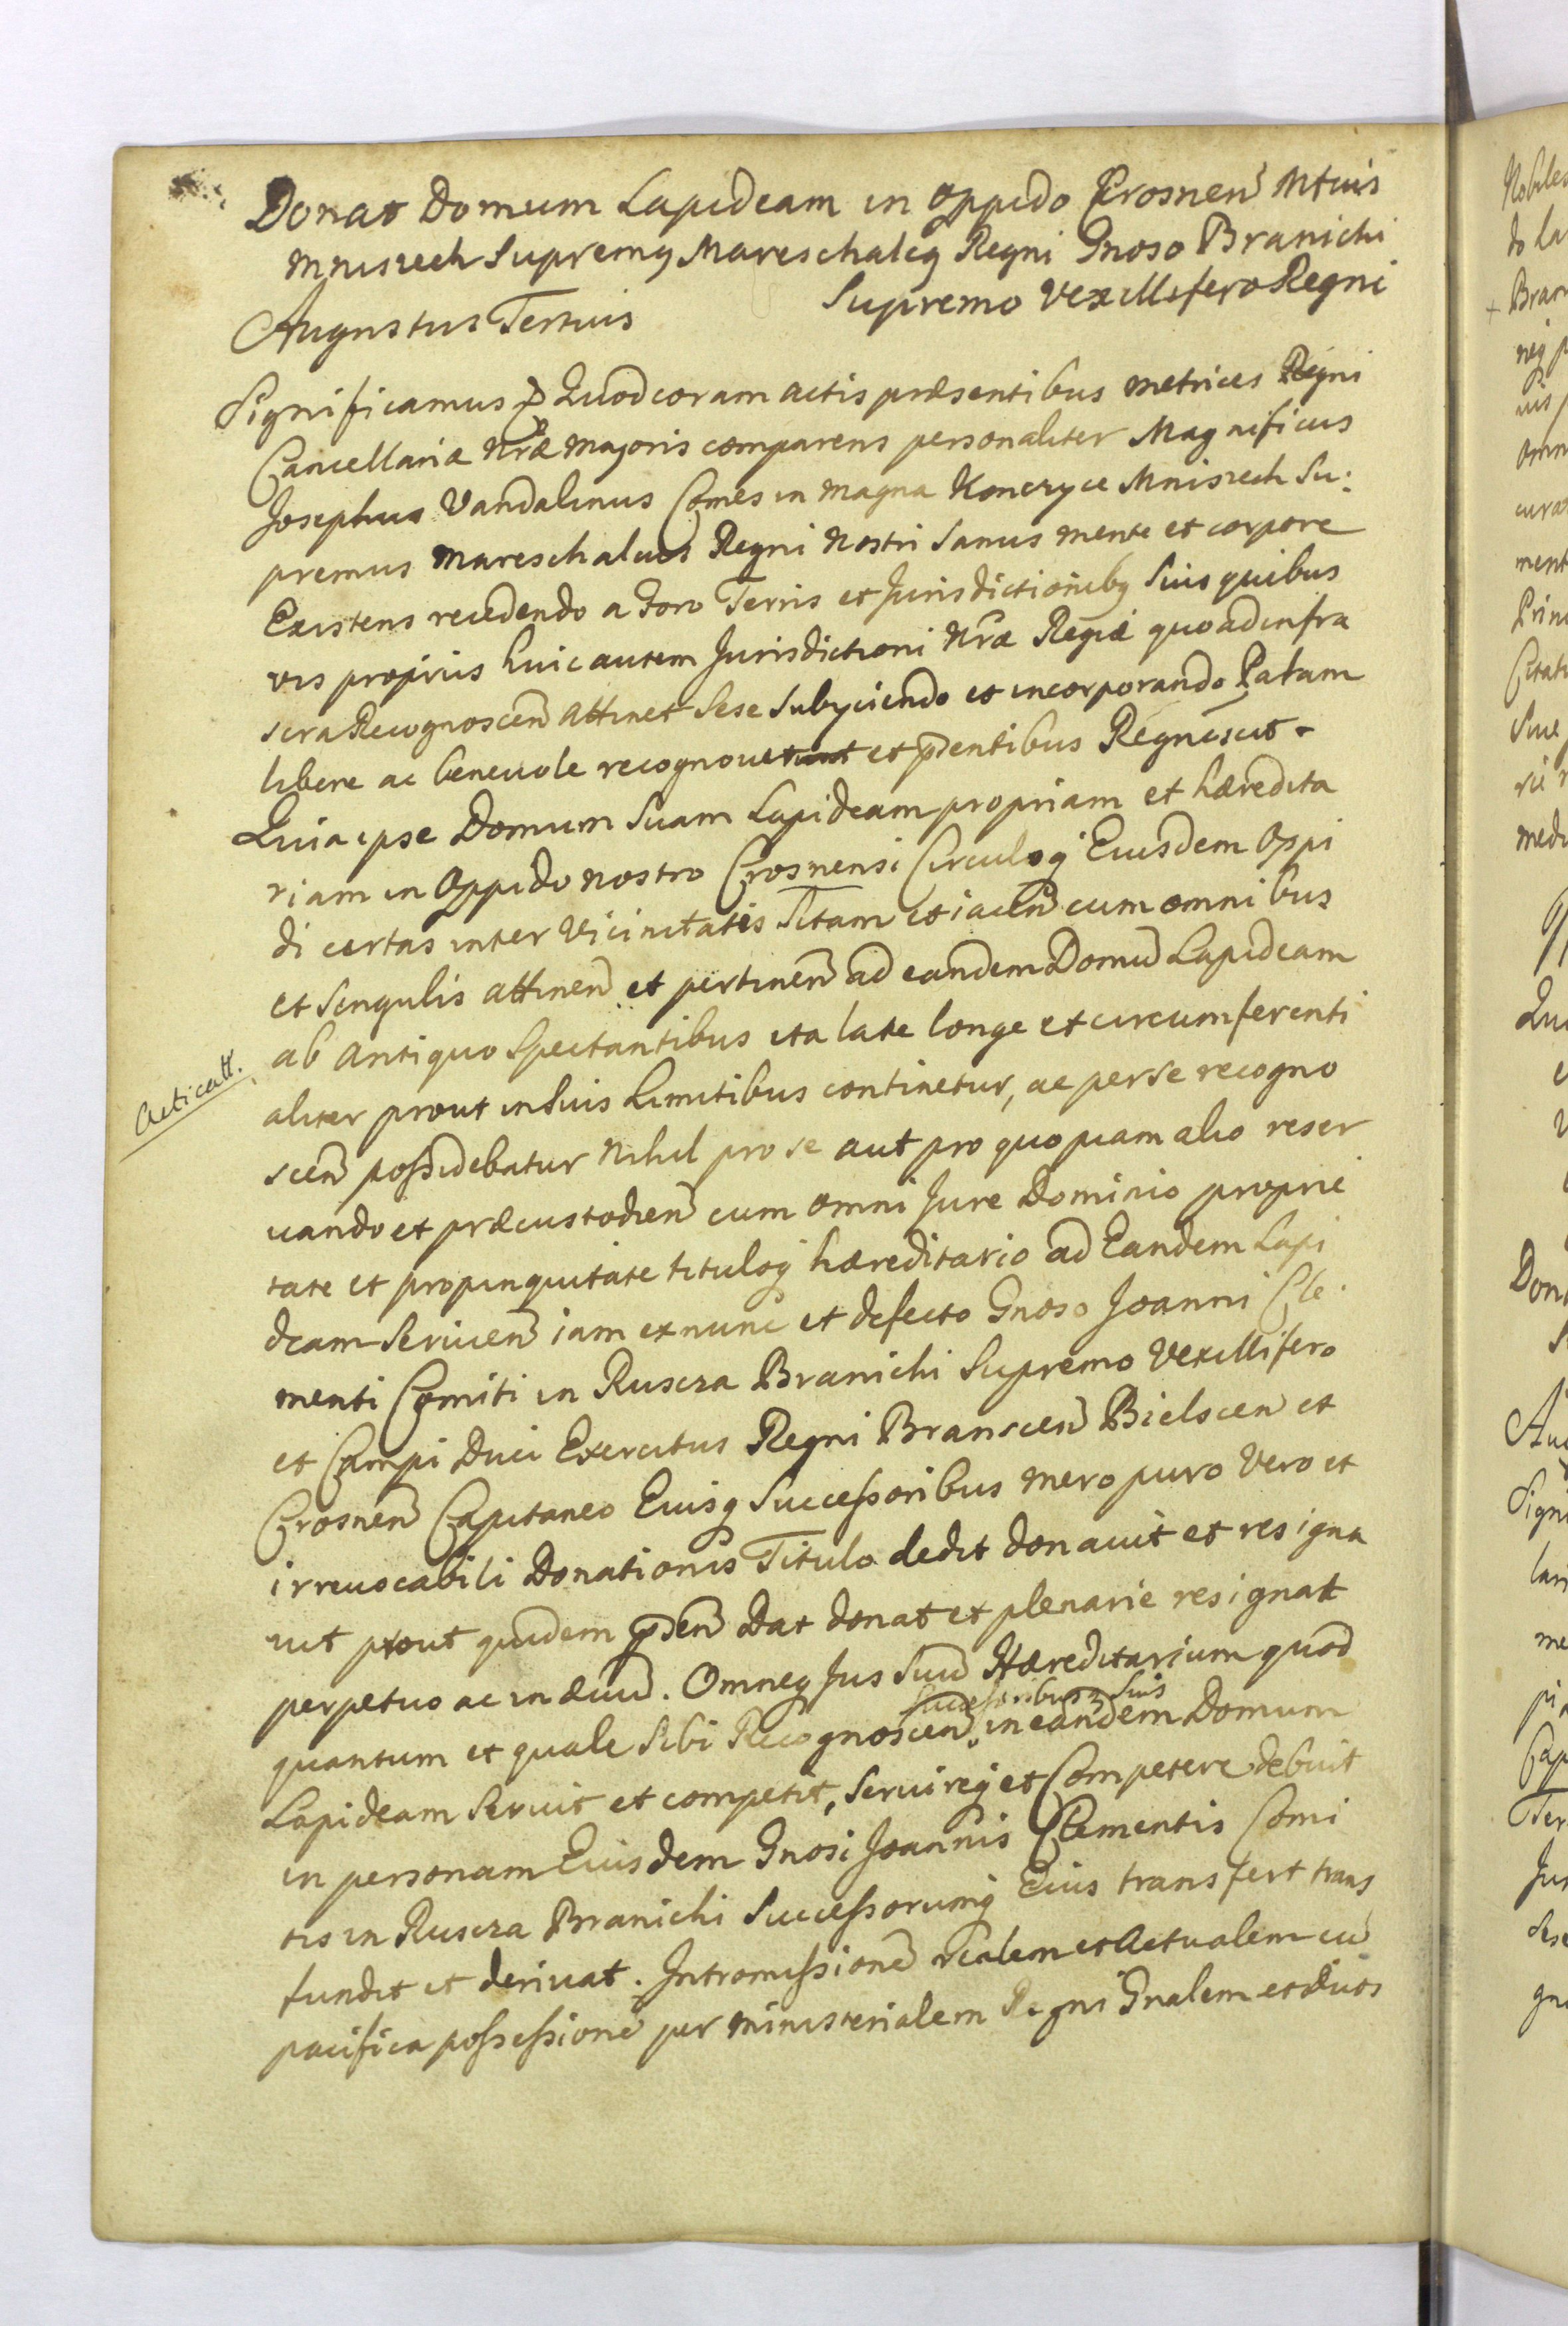 Donat Domum Lapideam in Oppido Crosnen Mfcus
Mniszech Supremus Mareschalcus Regni Gnoso Branicki
Supremo Vexillifero Regni
Augustus Tertius
Significamus Quod coram actis præsentibus metrices Regni
Cancellariæ Nræ Majoris comparens personaliter Magnificus
Josephus Vandalinus Comes in Magna Konczyce Mniszech Su:
premus Mareschalcus Regni Nostri Sanus mente et corpore
Existens recedendo a Foro Terris et Jurisdictionibq Suis quibus
vis propriis huic autem Jurisdictioni Nræ Regiæ quoad infra
scra Recognoscen attinet Sese Subyciendo et incorporando Palam
libere ac benevole recognovit et præntibus Regnoscit
Quia ipse Domum Suam Lapideam propriam et hæredita
riam in Oppido nostro Crosnensi Circuloq Eiusdem Oppi
di certas inter Vicinitates Sitam et iacen cum omnibus
et Singulis attinen et pertinen ad eandem Domu Lapideam
ab antiquo Spectantibus ita late longe et circumferenti
aliter prout in Suis Limitibus continetur, ac per se recogno
Acticatt.
scen possidebatur Nihil pro se aut pro quopiam alio reser
vando et præcustodien cum omni Jure Dominio proprie
tate et propinquitate tituloq hæreditario ad Eandem Lapi
deam Servien iam ex nunc et defecto Gnoso Joanni Cle
menti Comiti in Ruscza Branicki Supremo Vexillifero
et Campi Duci Exercitus Regni Branscen Bielscen et
Crosnen Capitaneo Eiusq Successoribus mero puro Vero et
irrevocabili Donationis Titulo dedit donavit et resigna
vit prout quidem præsen Dat donat et plenarie resignat
perpetuo ac in ævu. Omneq Jus Suu Hæreditarium quod
Successoribusq Suis
quantum et quale Sibi Recognoscen in eandem Domum
Lapideam Servit et competit, Servireq et Competere debuit
in personam Eiusdem Gnosi Joannis Clementis Comi
tis in Ruscza Branicki Successorumq Eius transfert trans
fundit et derivat. Intromissione realem et Actualem cu
pacifica possessione per Ministerialem Regni Gnalem et duos